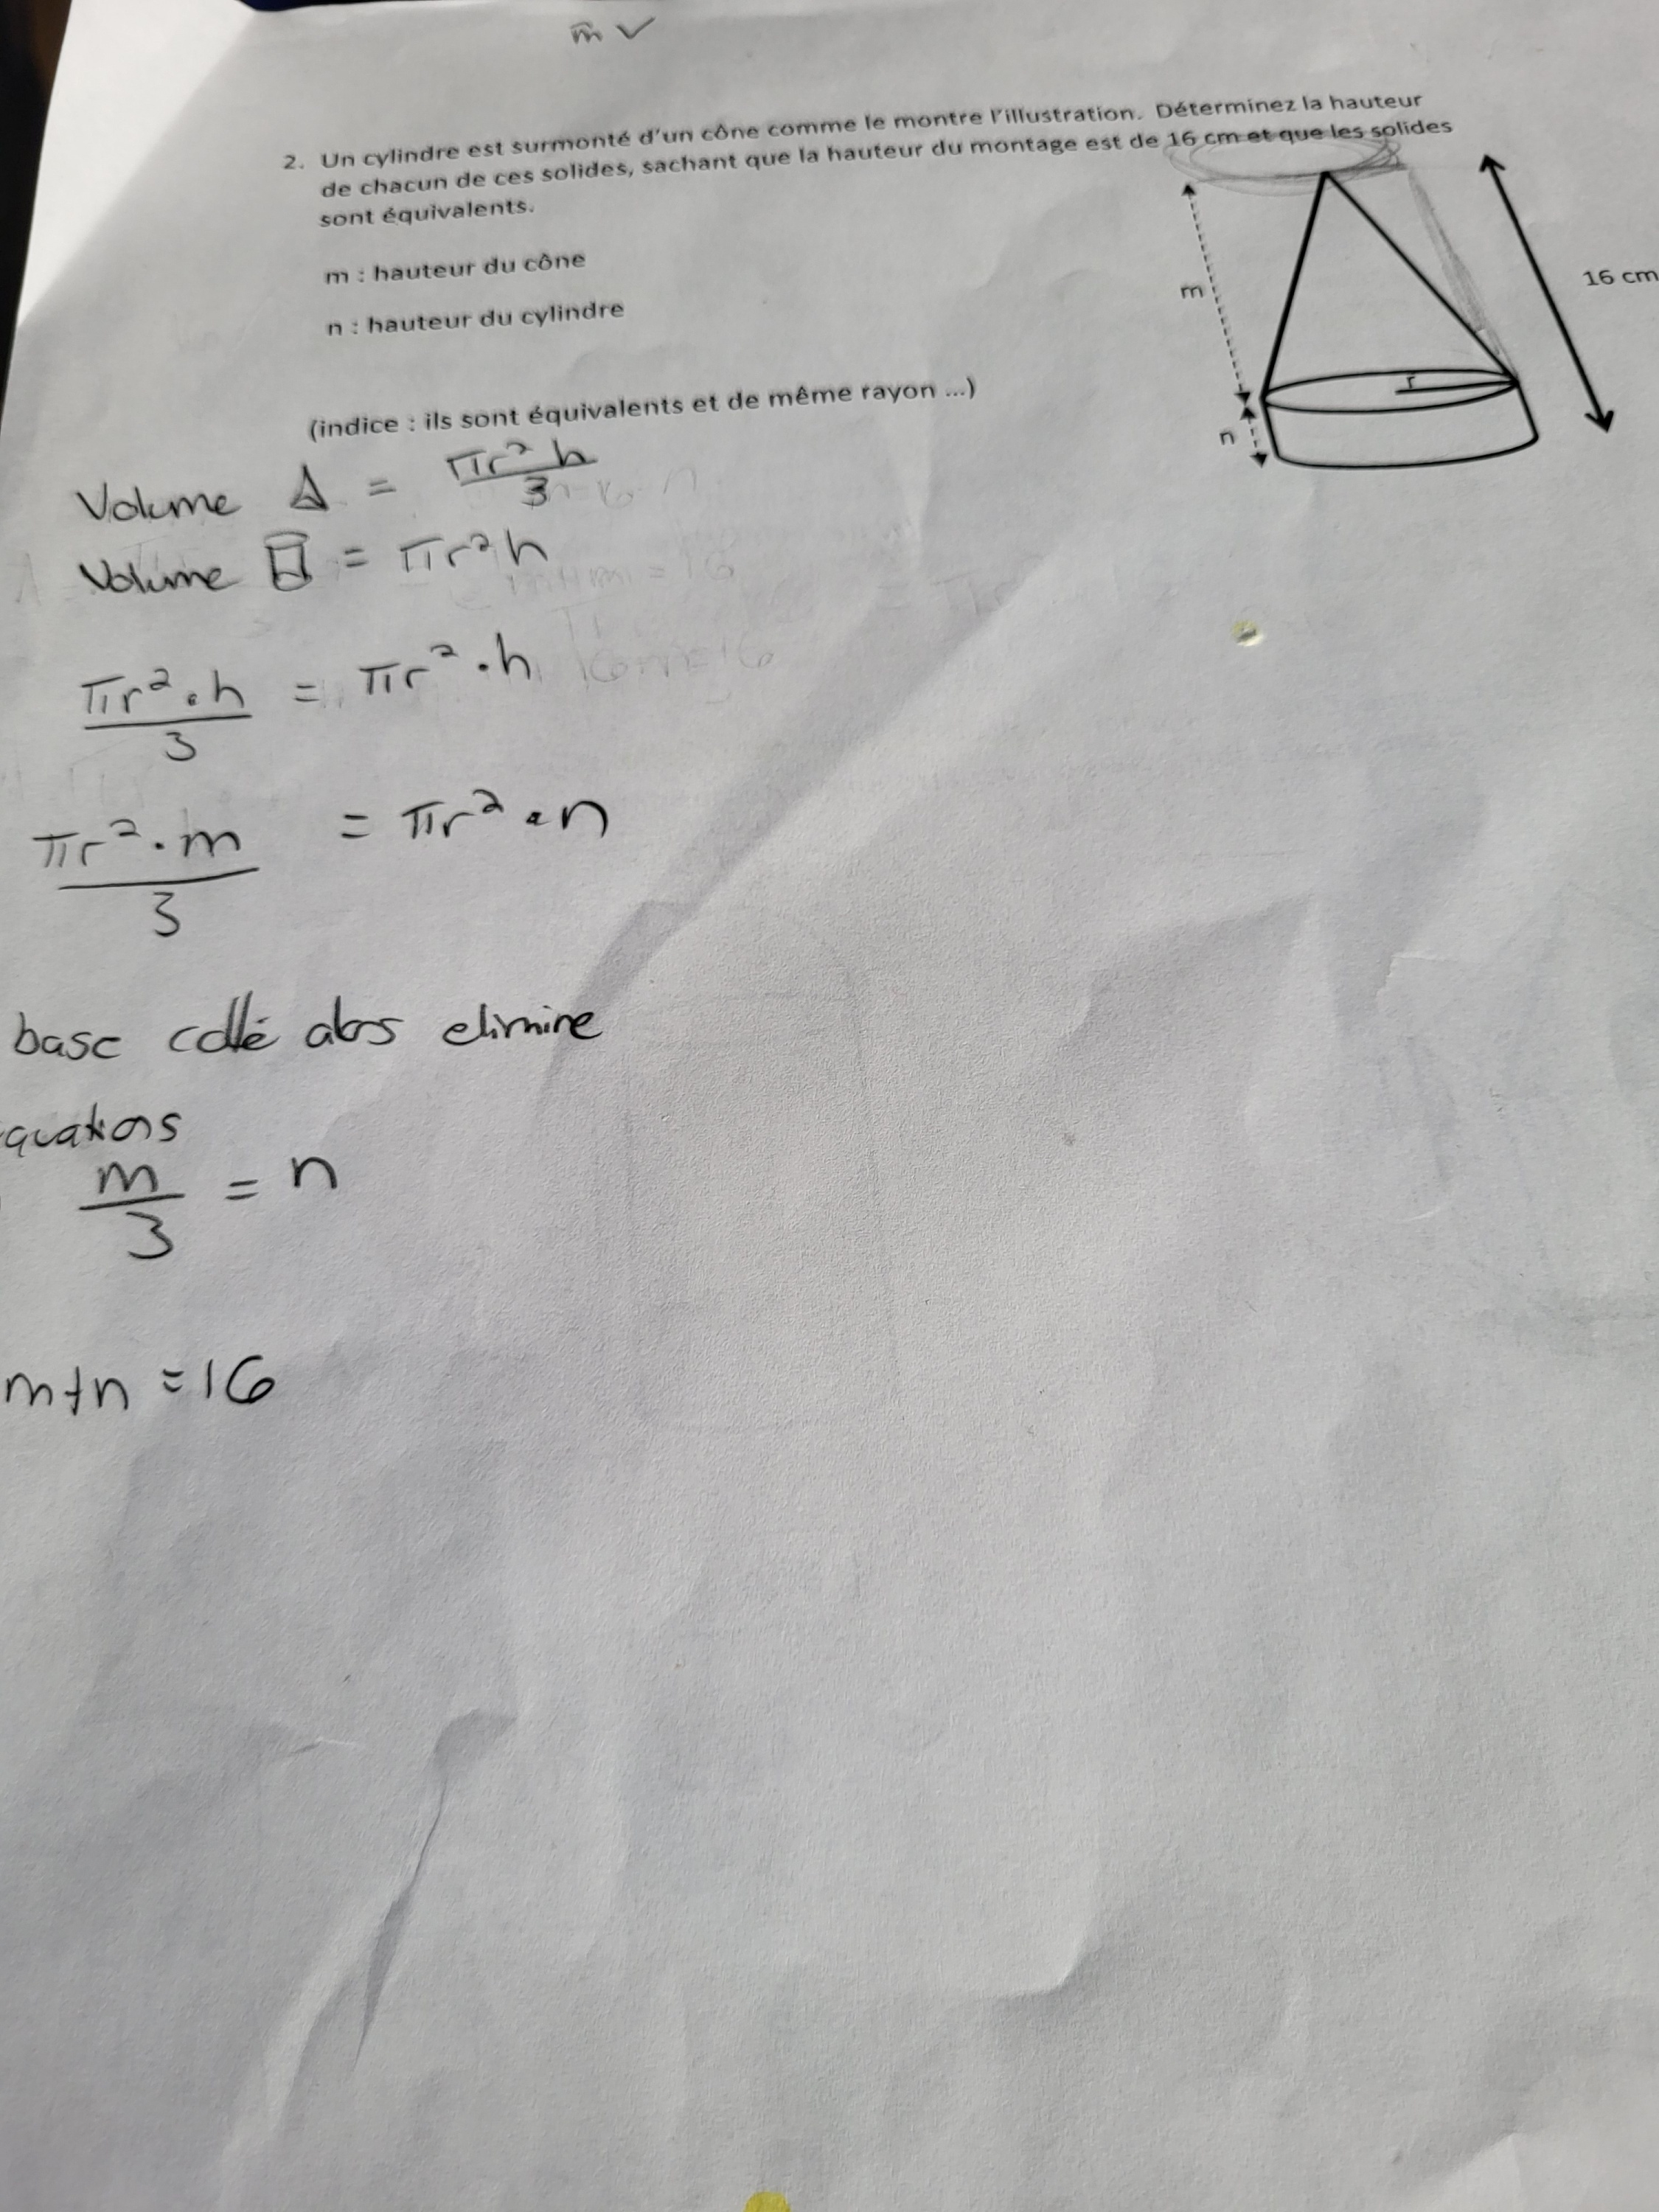 m ✓
2. Un cylindre est surmonté d'un cône comme le montre l'illustration. Déterminez la hauteur
de chacun de ces solides, sachant que la hauteur du montage est de 16 cm et que les solides
sont équivalents.
m : hauteur du cône
n : hauteur du cylindre
m
n
r
16 cm
(indice : ils sont équivalents et de même rayon ...)
Volume = πr² h / 3
Volume = πr²h
πr² · h / 3 = πr² · h
πr² · m / 3 = πr² · n
base collé alors elimine
quations
m / 3 = n
m+n = 16